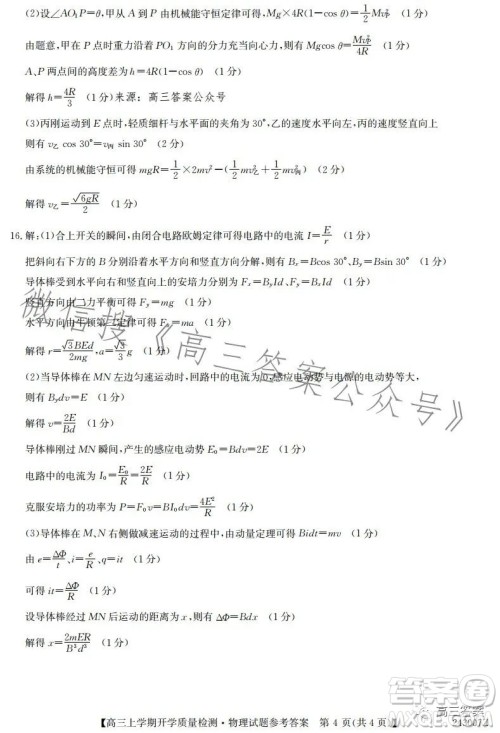 (2)设∠AO₁P=θ,甲从 A 到 P 由机械能守恒定律可得,Mg×4R(1−cos θ)=1/2 Mv_P² (1分)
由题意,甲在 P 点时重力沿着 PO₁ 方向的分力充当向心力,则有 Mgcos θ=Mv_P²/4R (1分)
A、P 两点间的高度差为 h=4R(1−cos θ) (1分)
解得 h=4R/3 (1分)来源:高三答案公众号
(3)丙刚运动到 E 点时,轻质细杆与水平面的夹角为 30°,乙的速度水平向左,丙的速度竖直向上
则有 v乙 cos 30°=v丙 sin 30° (2分)
由系统的机械能守恒可得 mgR=1/2×2mv²−(1/2 mv乙²+1/2 mv丙²) (2分)
解得 v乙=√(6gR)/2 (1分)
16.解:(1)合上开关的瞬间,由闭合电路欧姆定律可得电路中的电流 I=E/r (1分)
把斜向右下方的 B 分别沿着水平方向和竖直方向分解,则有 Bₓ=Bcos 30°、Bᵧ=Bsin 30° (1分)
导体棒受到水平方向和竖直方向上的安培力分别为 Fₓ=BᵧId、Fᵧ=BₓId (1分)
竖直方向由二力平衡可得 Fᵧ=mg (1分)
水平方向由牛顿第二定律可得 Fₓ=ma (1分)
解得 r=√3BEd/2mg,a=√3/3 g (1分)
(2)当导体棒在 MN 左边匀速运动时,回路中的电流为0,感应电动势与电源的电动势等大,
则有 Bᵧdv=E (1分)
解得 v=2E/Bd (1分)
导体棒刚过 MN 瞬间,产生的感应电动势 E₀=Bdv=2E (1分)
电路中的电流为 I₀=E₀/R=2E/R (1分)
克服安培力的功率为 P=F₀v=BI₀dv=4E²/R (1分)
(3)导体棒在 M、N 右侧做减速运动的过程中,由动量定理可得 Bidt=mv (1分)
由 e=ΔΦ/t、i=e/R、q=it (1分)
可得 it=ΔΦ/R (1分)
设导体棒经过 MN 后运动的距离为 x,则有 ΔΦ=Bdx (1分)
解得 x=2mER/B³d³ (1分)
微信搜《高三答案公众号》
【高三上学期开学质量检测·物理试题参考答案 第 4 页(共 4 页)】
高三答案